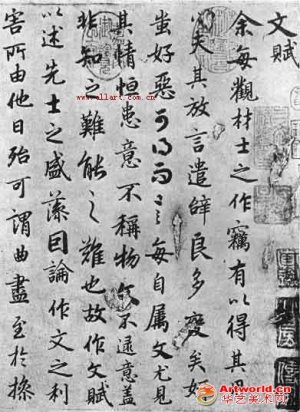 文賦
余每觀材士之作竊有以得其
心夫其放言遣辭良多變矣妍
蚩好惡可得而言每自属文尤見
其情恒患意不稱物文不逮意盖
非知之難能之難也故作文賦
以述先士之盛藻因論作文之利
害所由他日殆可謂曲盡至於操
www.allart.com.cn
Artworld.cn
华艺美术网